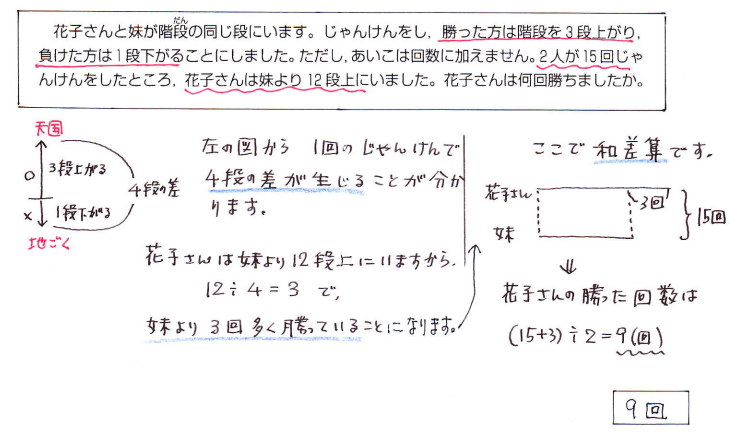 花子さんと妹が階段の同じ段にいます。じゃんけんをし，勝った方は階段を3段上がり，
だん
負けた方は1段下がることにしました。ただし，あいこは回数に加えません。2人が15回じゃ
んけんをしたところ，花子さんは妹より12段上にいました。花子さんは何回勝ちましたか。
天国
○
3段上がる
4段の差
×
1段下がる
地ごく
左の図から 1回のじゃんけんで
4段の差が生じることが分か
ります。
花子さんは妹より12段上にいますから、
12÷4=3 で、
妹より3回多く勝っていることになります。
ここで和差算です。
花子さん
3回
15回
妹
⇓
花子さんの勝った回数は
(15+3)÷2=9(回)
9回